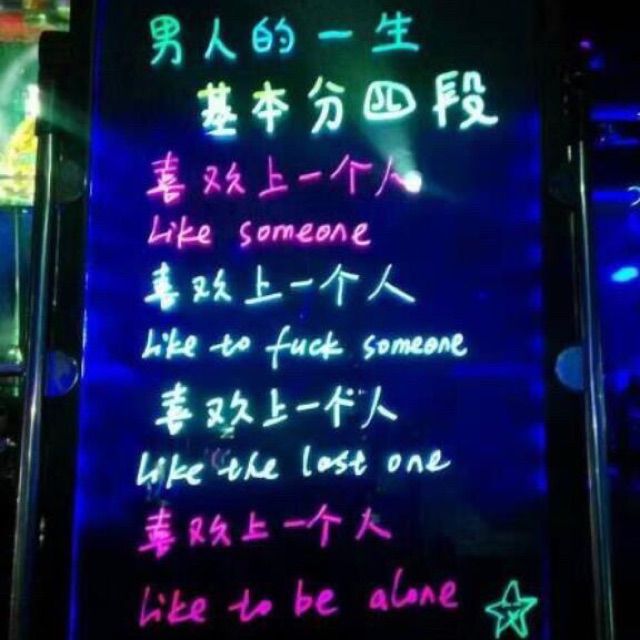 男人的一生
基本分四段
喜欢上一个人
Like someone
喜欢上一个人
Like to fuck someone
喜欢上一个人
Like the last one
喜欢上一个人
Like to be alone